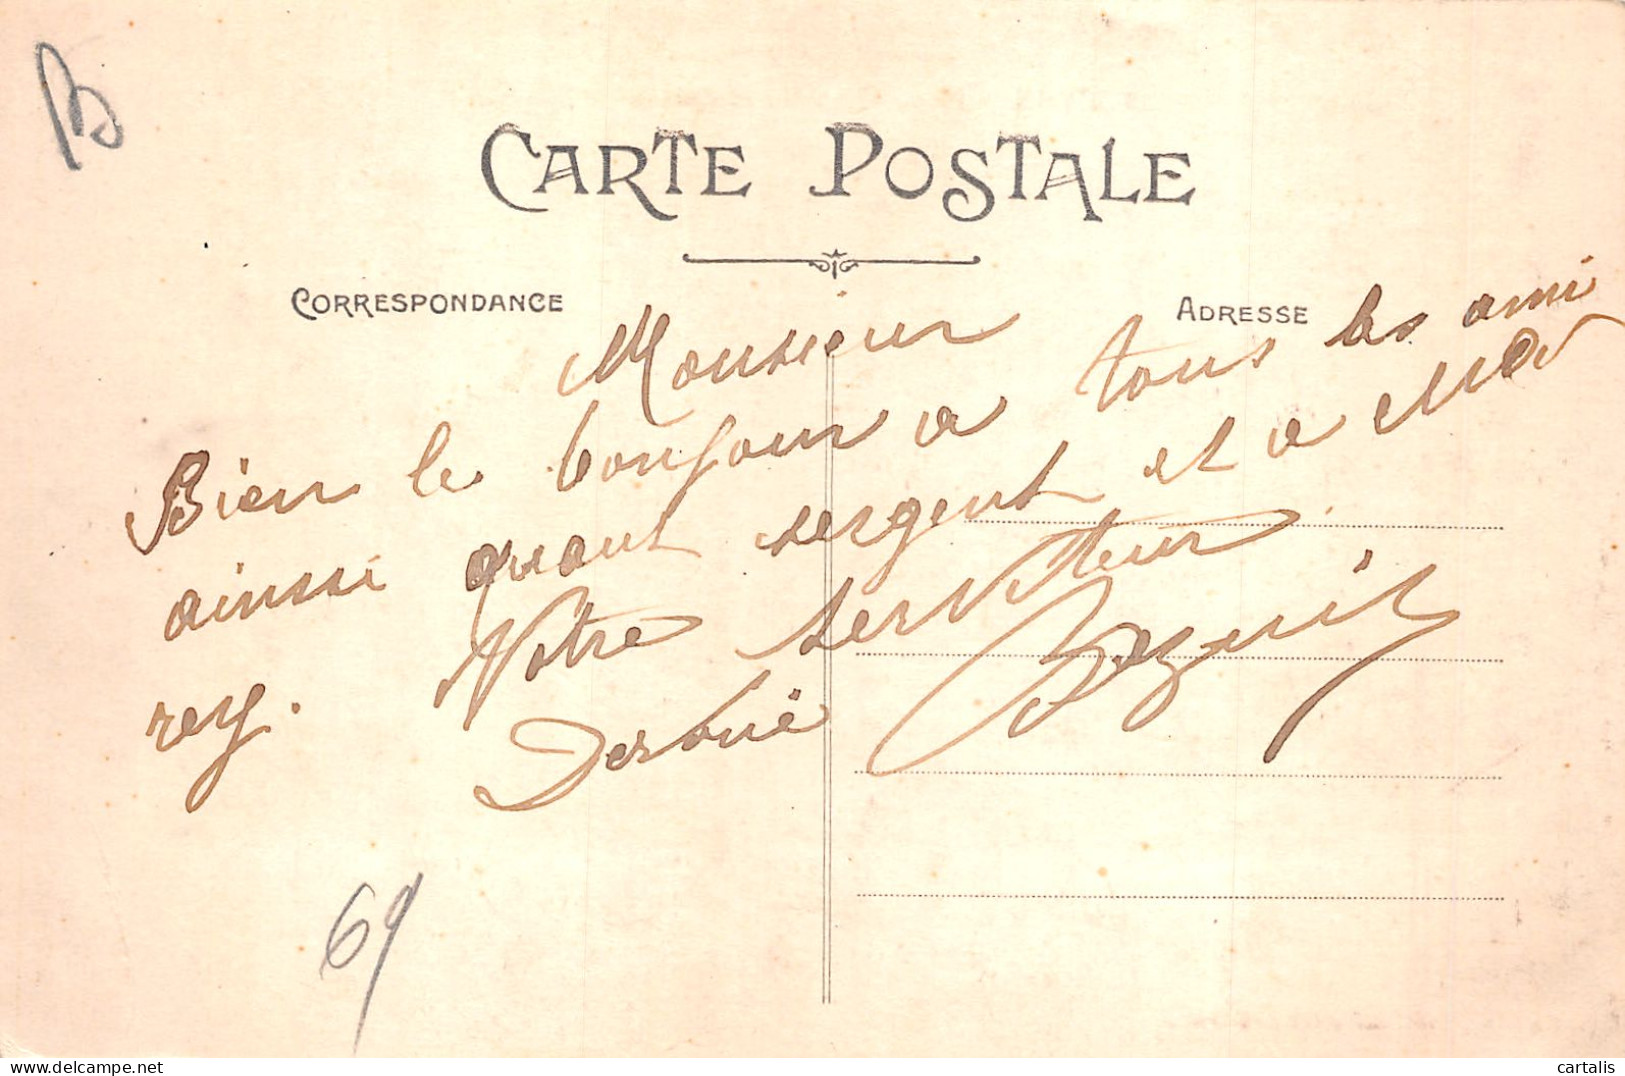 CARTE POSTALE
CORRESPONDANCE
ADRESSE
Monsieur
Bien le bonjour a tous les ami
ainsi quant sergent et a
rey.
Votre serviteur
69
delcampe.net
cartalis